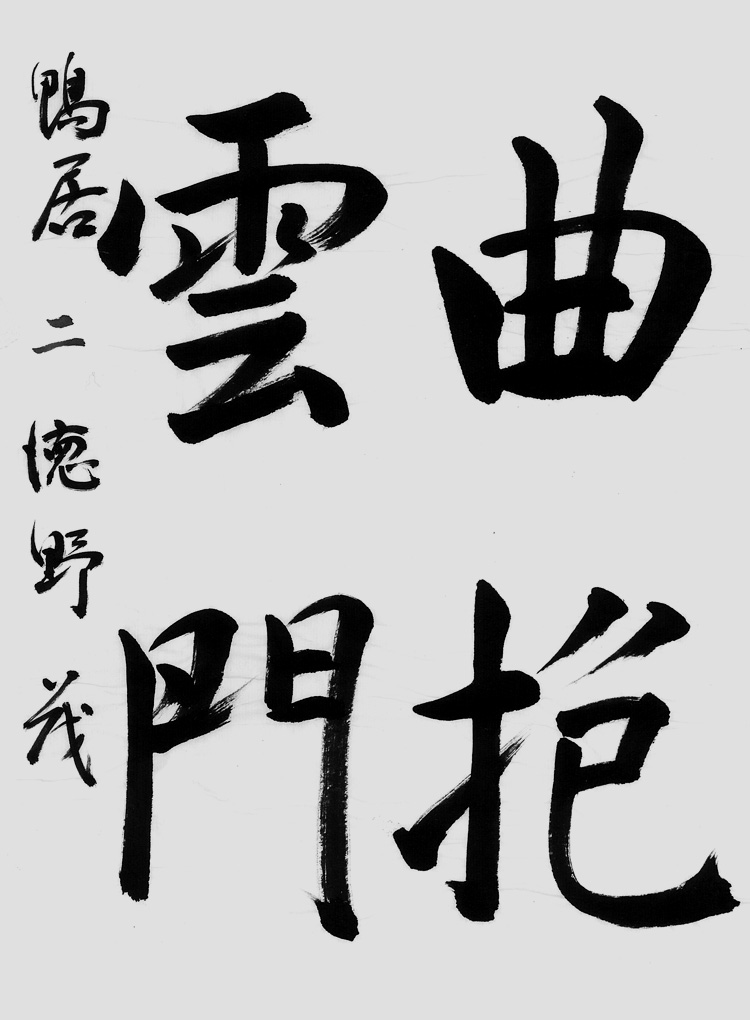 曲抱
雲門
鴨居 二 徳野 茂